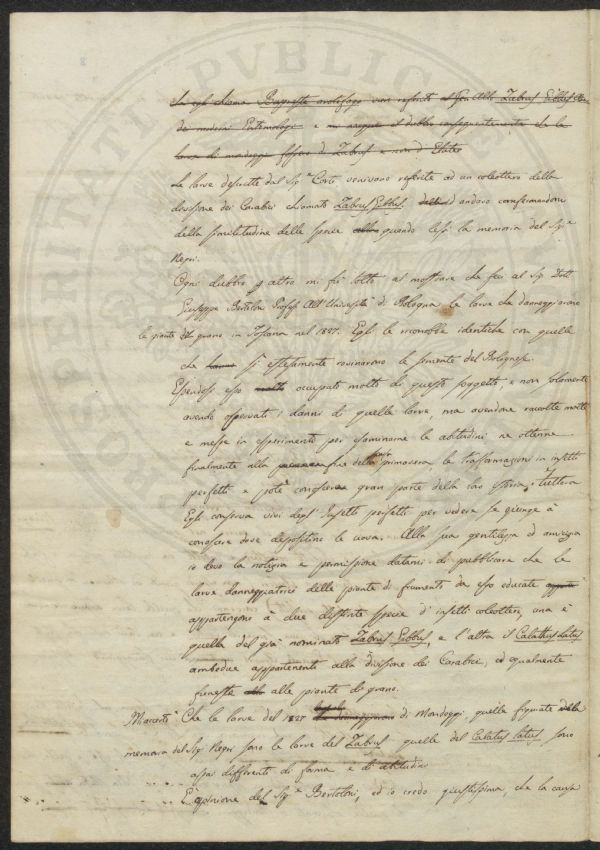 da egli chiama Bupreste
dei moderni Entomologi e
larve di mondeggi fossero di Zabrus e non d'Elater
Le larve descritte dal Sig.r Corti venivano riferite ad un coleottero della
divisione dei Carabici chiamato Zabrus Gibbus. ed andavo confermandomi
della similitudine delle specie quando lessi la memoria del Sig.r
Negri.
Ogni dubbio p altro mi fu tolto al mostrare che feci al Sig. Dott
Giuseppe Bertoloni Profess. All'Università di Bologna le larve che danneggiarono
le piante del grano in Toscana nel 1827. Egli le riconobbe identiche con quelle
che hanno sì estesamente rovinarono le semente del Bolognese.
Essendosi esso molto occupato molto di questo soggetto e non solamente
avendo osservati i danni di quelle larve, ma avendone raccolte molte
e messe in esperimento per esaminarne le abitudini ne ottenne
finalmente alla fine della primavera le trasformazioni in insetti
perfetti e potè conoscere gran parte della loro storia, tuttora
Egli conserva vivi degl'Insetti perfetti per vedere se giunge a
conoscere dove depositino le uova. Alla sua gentilezza ed amicizia
io devo la notizia e permissione datami di pubblicare che le
larve danneggiatrici delle piante di frumento da esso educate
appartengono a due distinte specie d'insetti coleotteri, una è
quella del già nominato Zabrus Gibbus, e l'altra il Calathus Latus
ambodue appartenenti alla divisione dei Carabici, ed egualmente
funeste alle piante di grano.
Che le larve del 1827 di Mondeggi quelle figurate della
memoria del Sig. Negri sono le larve del Zabrus quelle del Calatus latus sono
assai differenti di forma e di abitudini
E opinione del Sig.r Bertoloni, ed io credo giustissima, che la causa